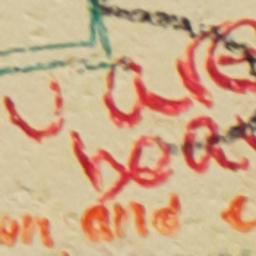 u are
bea
on and